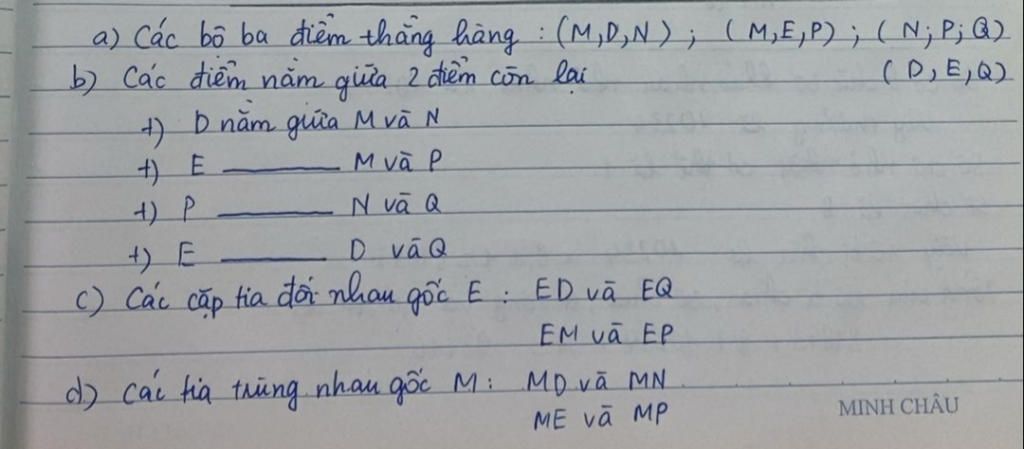 a) Các bộ ba điểm thẳng hàng : (M,D,N) ; (M,E,P) ; (N;P;Q)
(D,E,Q)
b) Các điểm nằm giữa 2 điểm còn lại
+) D nằm giữa M và N
+) E ——— M và P
+) P ——— N và Q
+) E ——— D và Q
c) Các cặp tia đối nhau gốc E : ED và EQ
EM và EP
d) Các tia trùng nhau gốc M : MD và MN
ME và MP
MINH CHÂU